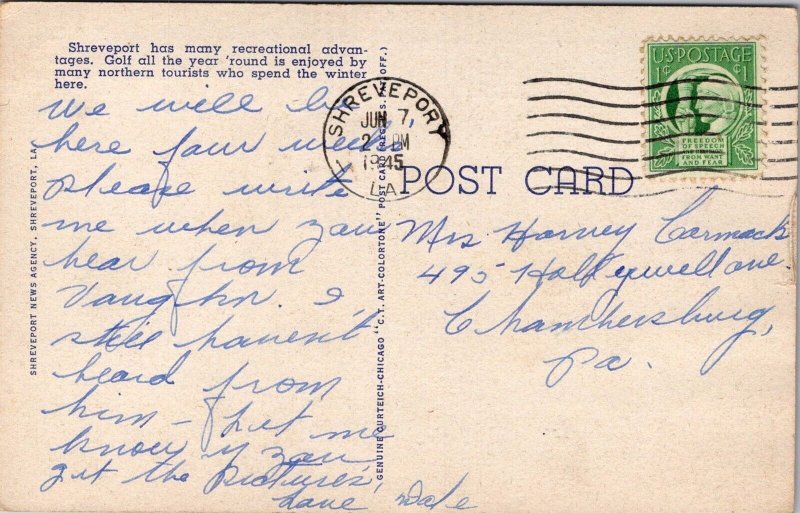 Shreveport has many recreational advan-
tages. Golf all the year 'round is enjoyed by
many northern tourists who spend the winter
here.
We will be
here four weeks,
please write
me when you
hear from
Vaughn. I
still haven't
heard from
him - Let me
know if you
get the pictures,
Love Dale
SHREVEPORT NEWS AGENCY, SHREVEPORT, LA.
GENUINE CURTEICH-CHICAGO "C.T. ART-COLORTONE" POST CARD (REG. U.S. PAT. OFF.)
SHREVEPORT
JUN 7,
2 PM
1945
LA.
U.S. POSTAGE
1¢ ¢1
FREEDOM
OF SPEECH
AND RELIGION
FROM WANT
AND FEAR
POST CARD
Mrs Harvey Cormack
495 Hollywell ave.
Chambersburg,
Pa.